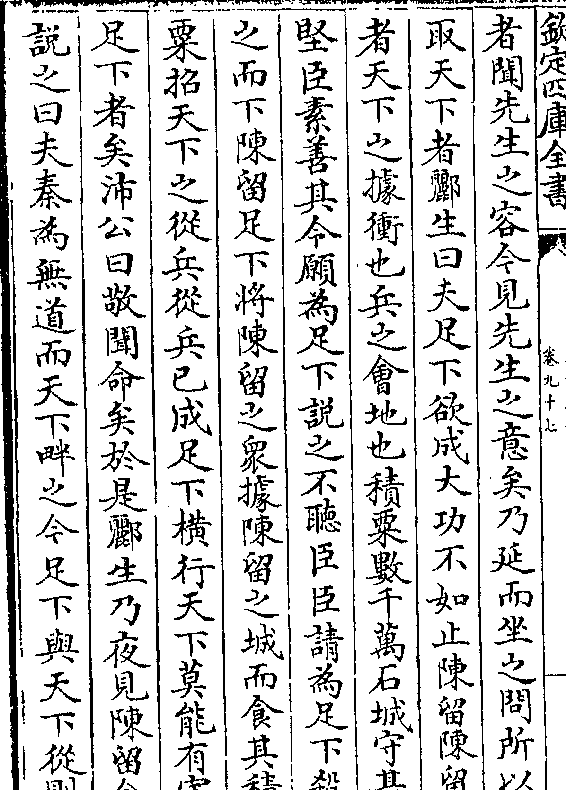 欽定四庫全書
卷九十七
者聞先生之容今見先生之意矣乃延而坐之問所以
取天下者酈生曰夫足下欲成大功不如止陳留陳留
者天下之據衝也兵之會地也積粟數千萬石城守甚
堅臣素善其令願為足下說之不聽臣臣請為足下殺
之而下陳留足下將陳留之衆據陳留之城而食其積
粟招天下之從兵從兵已成足下橫行天下莫能有害
足下者矣沛公曰敬聞命矣於是酈生乃夜見陳留令
說之曰夫秦為無道而天下畔之今足下與天下從則